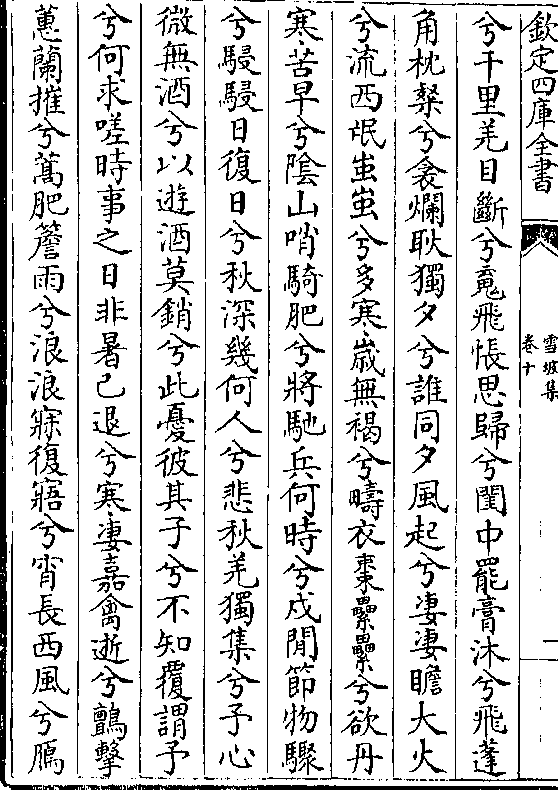 欽定四庫全書
雪坡集
卷十
兮千里羌目斷兮䰟飛悵思歸兮閨中罷膏沐兮飛蓬
角枕粲兮衾爛耿獨夕兮誰同夕風起兮凄凄瞻大火
兮流西氓蚩蚩兮多寒歲無褐兮疇衣棗纍纍兮欲丹
寒苦早兮陰山哨騎肥兮將馳兵何時兮戍閒節物驟
兮駸駸日復日兮秋深幾何人兮悲秋羌獨集兮予心
微無酒兮以遊酒莫銷兮此憂彼其子兮不知覆謂予
兮何求嗟時事之日非暑已退兮寒凄嘉禽逝兮鸇擊
蕙蘭摧兮蒿肥簷雨兮浪浪寐復寤兮宵長西風兮鴈